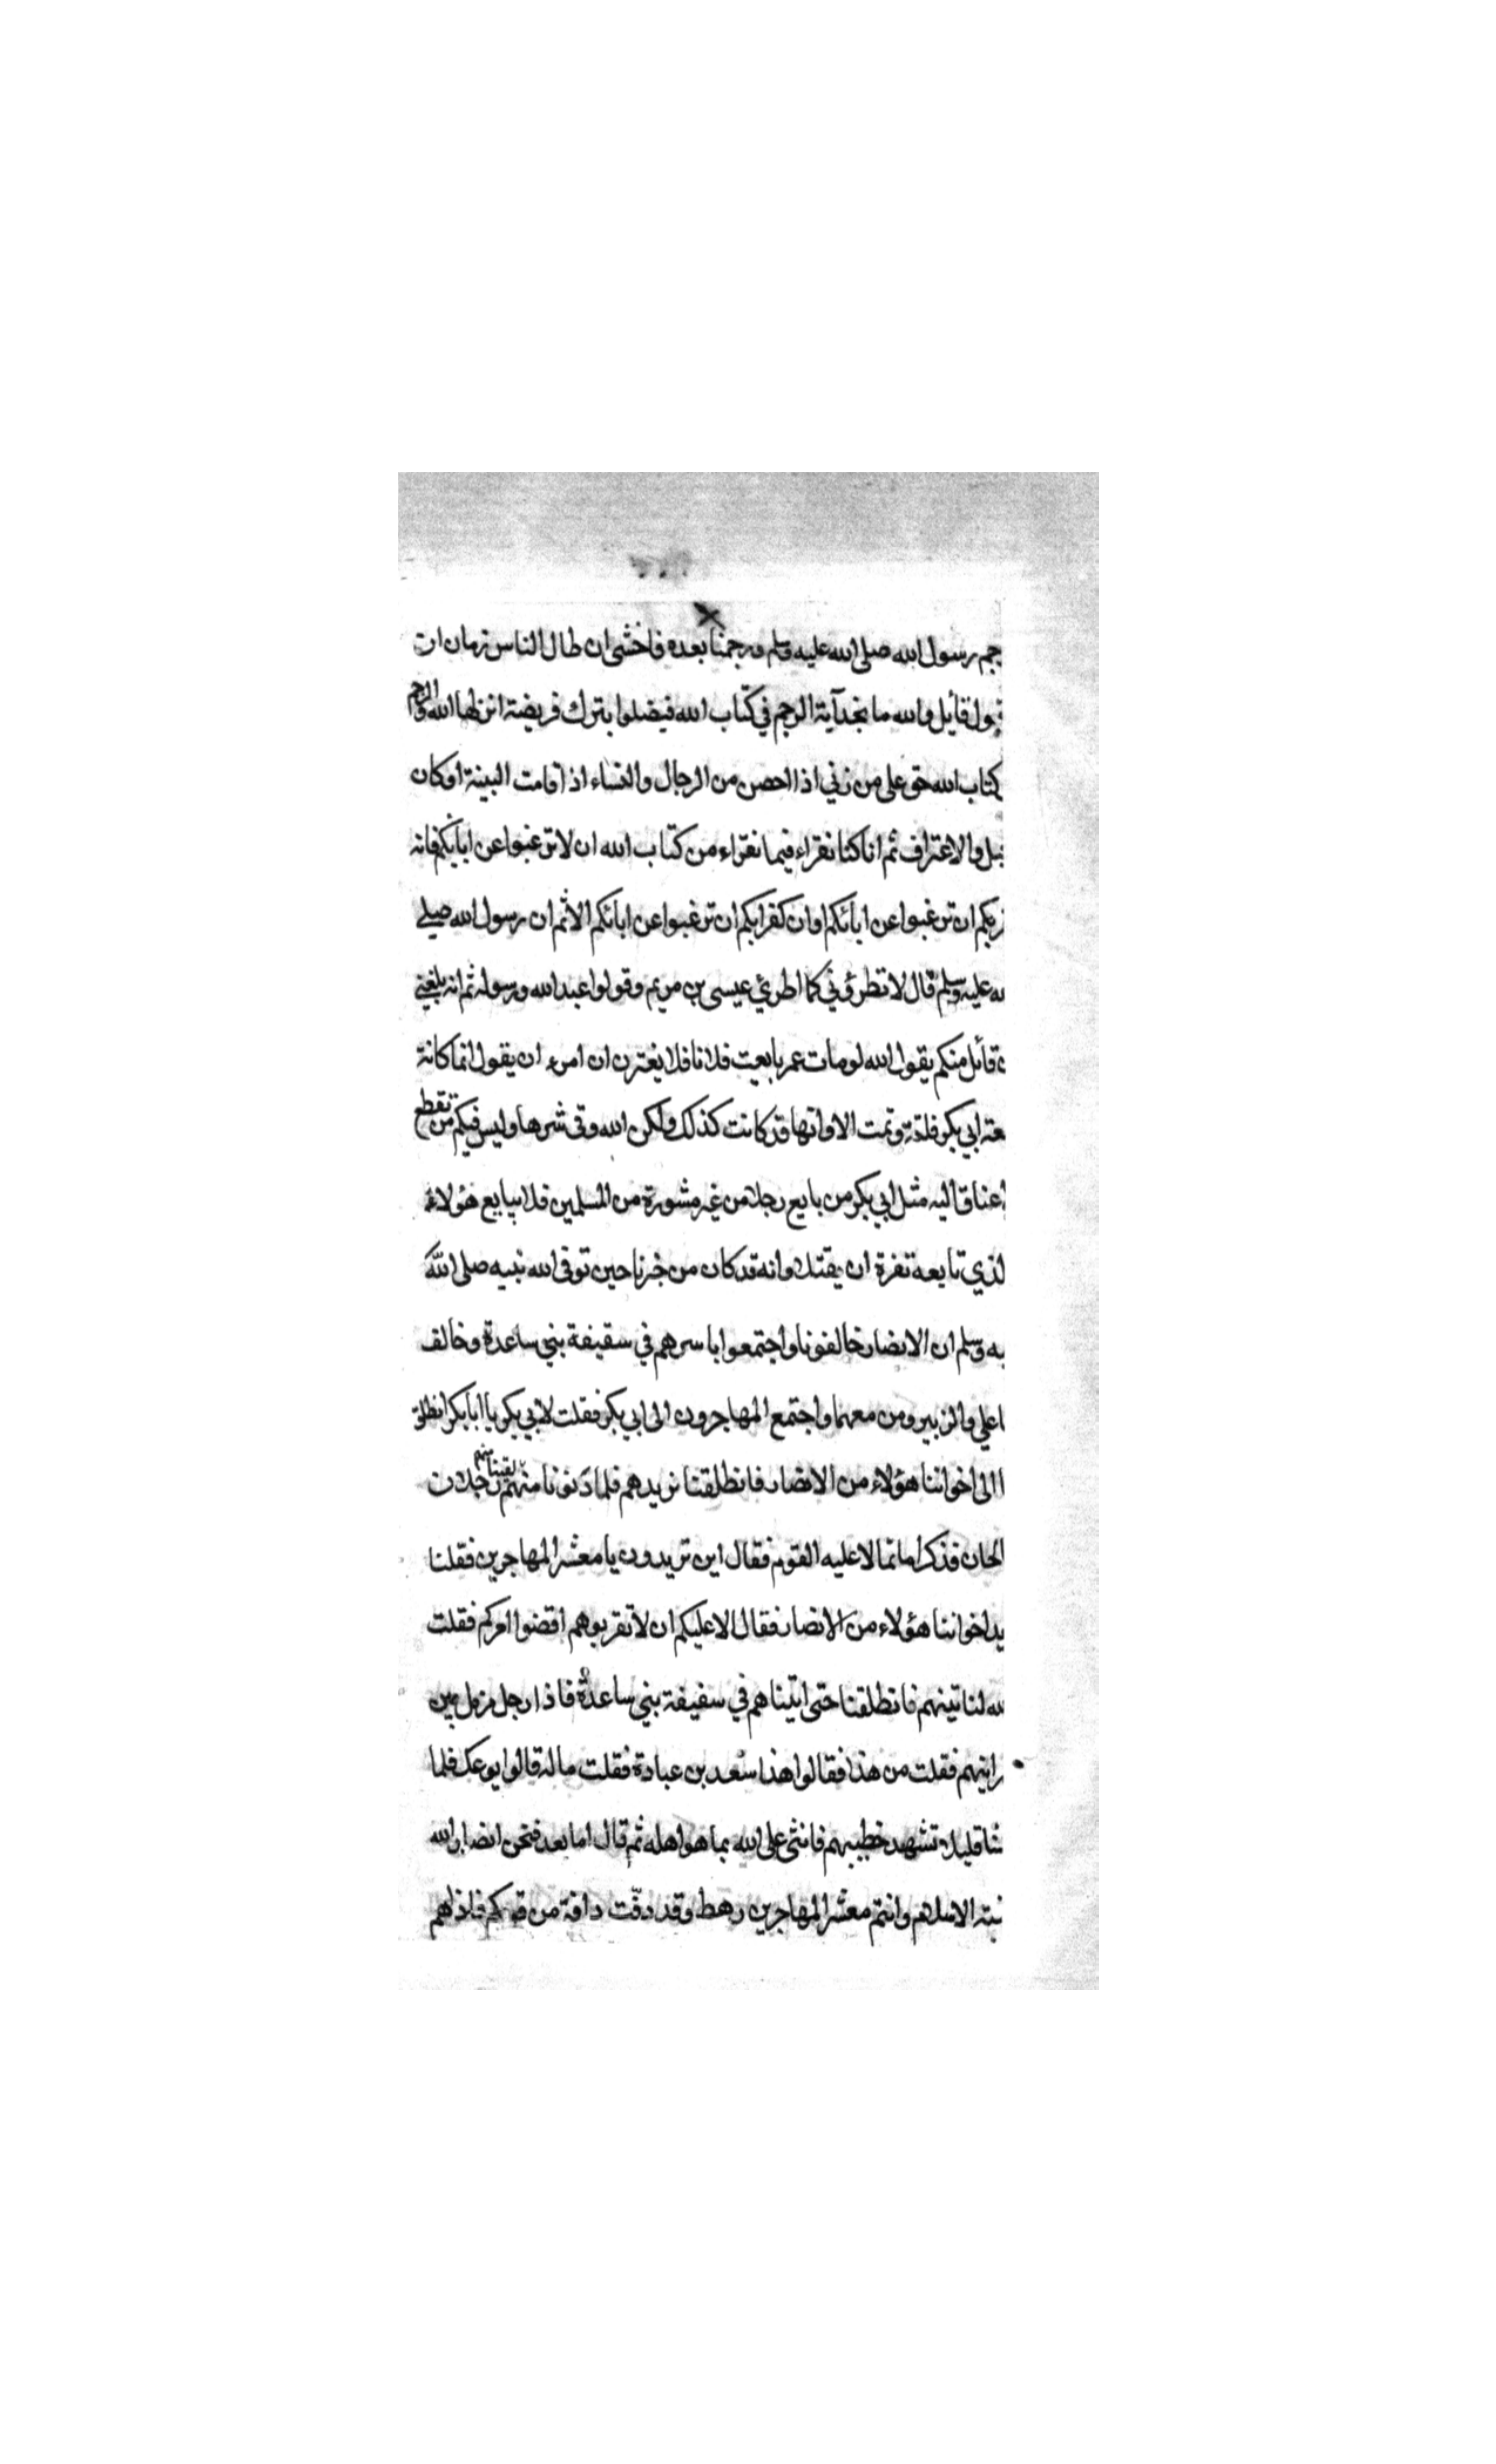 جم رسول الله صلى الله عليه وسلم ورجمنا بعده فاخشى ان طال الناس زمان ان
يقول قائل والله ما نجد آية الرجم في كتاب الله فيضلوا بترك فريضة انزلها الله والرجم
كتاب الله حق على من زني اذا احصن من الرجال والنساء اذا قامت البينة او كان
بل والاعتراف ثم انا كنا نقراء فيما نقراء من كتاب الله ان لا ترغبوا عن ابائكم فانه
ربكم ان ترغبوا عن ابائكم او ان كفرا بكم ان ترغبوا عن ابائكم الا ثم ان رسول الله صلى
له عليه وسلم قال لا تطروني كما اطري عيسى بن مريم وقولوا عبد الله ورسوله ثم انه بلغني
قائل منكم يقول الله لو مات عمر بايعت فلانا فلا يغترن ان امرء ان يقول انما كانة
عة ابي بكر فلتة وتمت الا وانها قد كانت كذلك ولكن الله وقى شرها وليس فيكم من تقطع
اعناق اليه مثل ابي بكر من بايع رجلا من غير مشورة من المسلمين فلا يبايع هؤلاء
لذي تابعه تغرة ان يقتلا وانه قد كان من خبرنا حين توفى الله نبيه صلى الله
يه وسلم ان الانصار خالفونا واجتمعوا باسرهم في سقيفة بني ساعدة وخالف
ا علي والزبير ومن معهما واجتمع المهاجرون الى ابي بكر فقلت لابي بكر يا ابا بكر انطلق
ا الى اخواننا هؤلاء من الانصار فانطلقنا نريدهم فلما دنونا منهم لقينا منهم رجلان
الحان فذكرا ما تمالا عليه القوم فقال اين تريدون يا معشر المهاجرين فقلنا
يد اخواننا هؤلاء من الانصار فقال لا عليكم ان لا تقربوهم اقضوا امركم فقلت
له لناتينهم فانطلقنا حتى اتيناهم في سقيفة بني ساعدة فاذا رجل مزمل بين
رانيهم فقلت من هذا فقالوا هذا سعد بن عبادة فقلت ما له قالوا يوعك فلما
نا قليلا تشهد خطيبهم فانثى على الله بما هو اهله ثم قال اما بعد فنحن انصار الله
يبة الاسلام وانتم معشر المهاجرين رهط وقد دفت دافة من قومكم فاذا هم